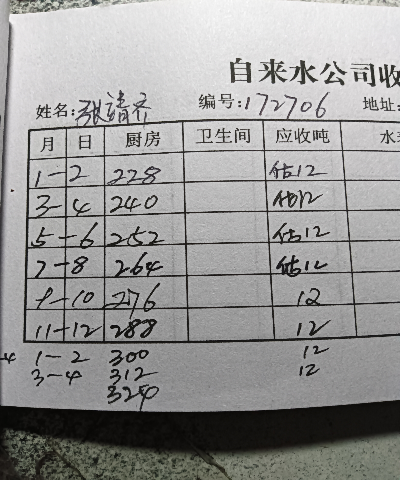 自来水公司收
姓名:张靖齐 编号:172706 地址:
月 日 厨房 卫生间 应收吨 水
1-2 228 估12
3-4 240 估12
5-6 252 估12
7-8 264 估12
9-10 276 12
11-12 288 12
1-2 300 12
3-4 312 12